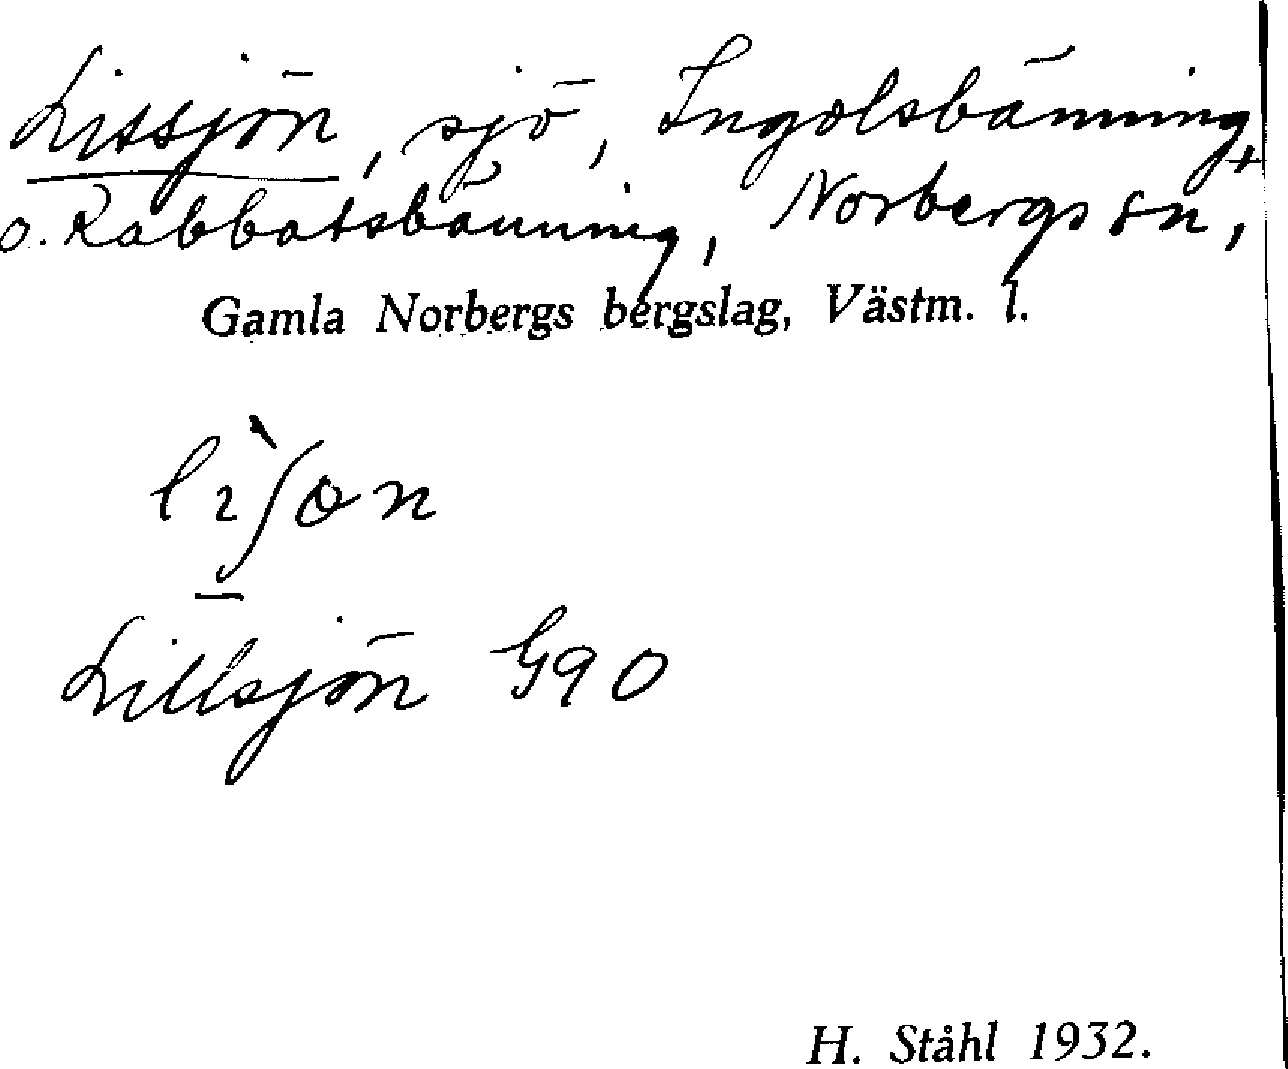 Lissjön, sjö, Ingolsbänning,
o. Kabbatsbänning, Norbergs sn,
Gamla Norbergs bergslag, Västm. l.
Lillsjön G90
H. Ståhl 1932.